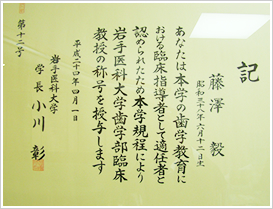 記
藤澤 毅
昭和三十八年六月十二日生
あなたは本学の歯学教育に
おける臨床指導者として適任者と
認められたため本学規程により
岩手医科大学歯学部臨床
教授の称号を授与します
平成二十四年四月一日
岩手医科大学
学長 小川 彰
第十二号